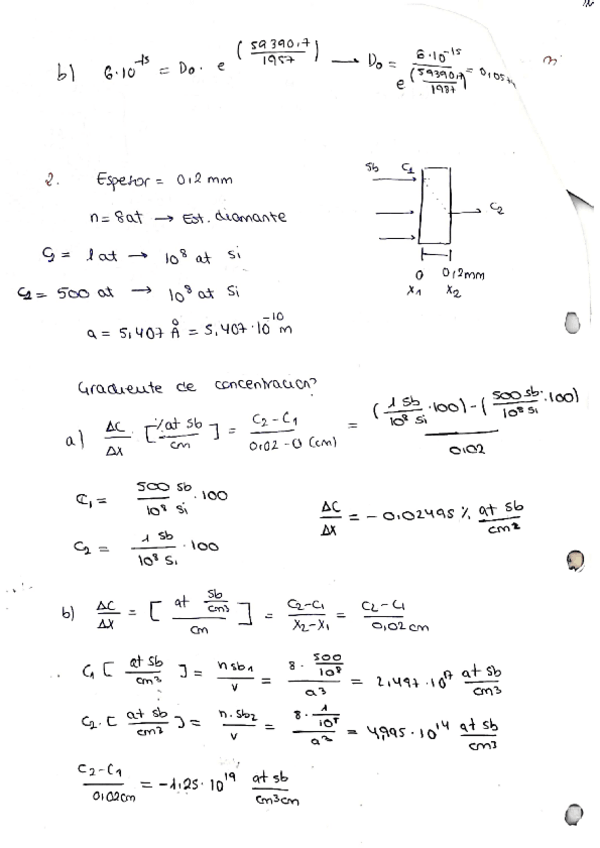 b) 6·10^-15 = Do · e^(59390,7/1987) → Do = 6·10^-15 / e^(59390,7/1987) = 0,057
2. Espesor = 0,2 mm
Sb C1
n = 8at → Est. diamante
C2
C1 = 1at → 10^8 at Si
0 0,2mm
C2 = 500 at → 10^8 at Si
x1 x2
a = 5,407 Å = 5,407·10^-10 m
Gradiente de concentracion?
a) ΔC/Δx [% at Sb/cm] = C2-C1 / 0,02-0 (cm) = (1 Sb/10^8 Si ·100) - (500 Sb/10^8 Si ·100) / 0,02
C1 = 500 Sb/10^8 Si ·100
ΔC/Δx = -0,02495 % at Sb/cm
C2 = 1 Sb/10^8 Si ·100
b) ΔC/Δx = [at Sb/cm3 / cm] = C2-C1 / x2-x1 = C2-C1 / 0,02cm
C1 [at Sb/cm3] = nSb1/v = 8·500/10^8 / a3 = 2,497·10^17 at Sb/cm3
C2 [at Sb/cm3] = n.Sb2/v = 8·1/10^8 / a3 = 4,995·10^14 at Sb/cm3
C2-C1 / 0,02cm = -1,25·10^19 at Sb/cm3cm